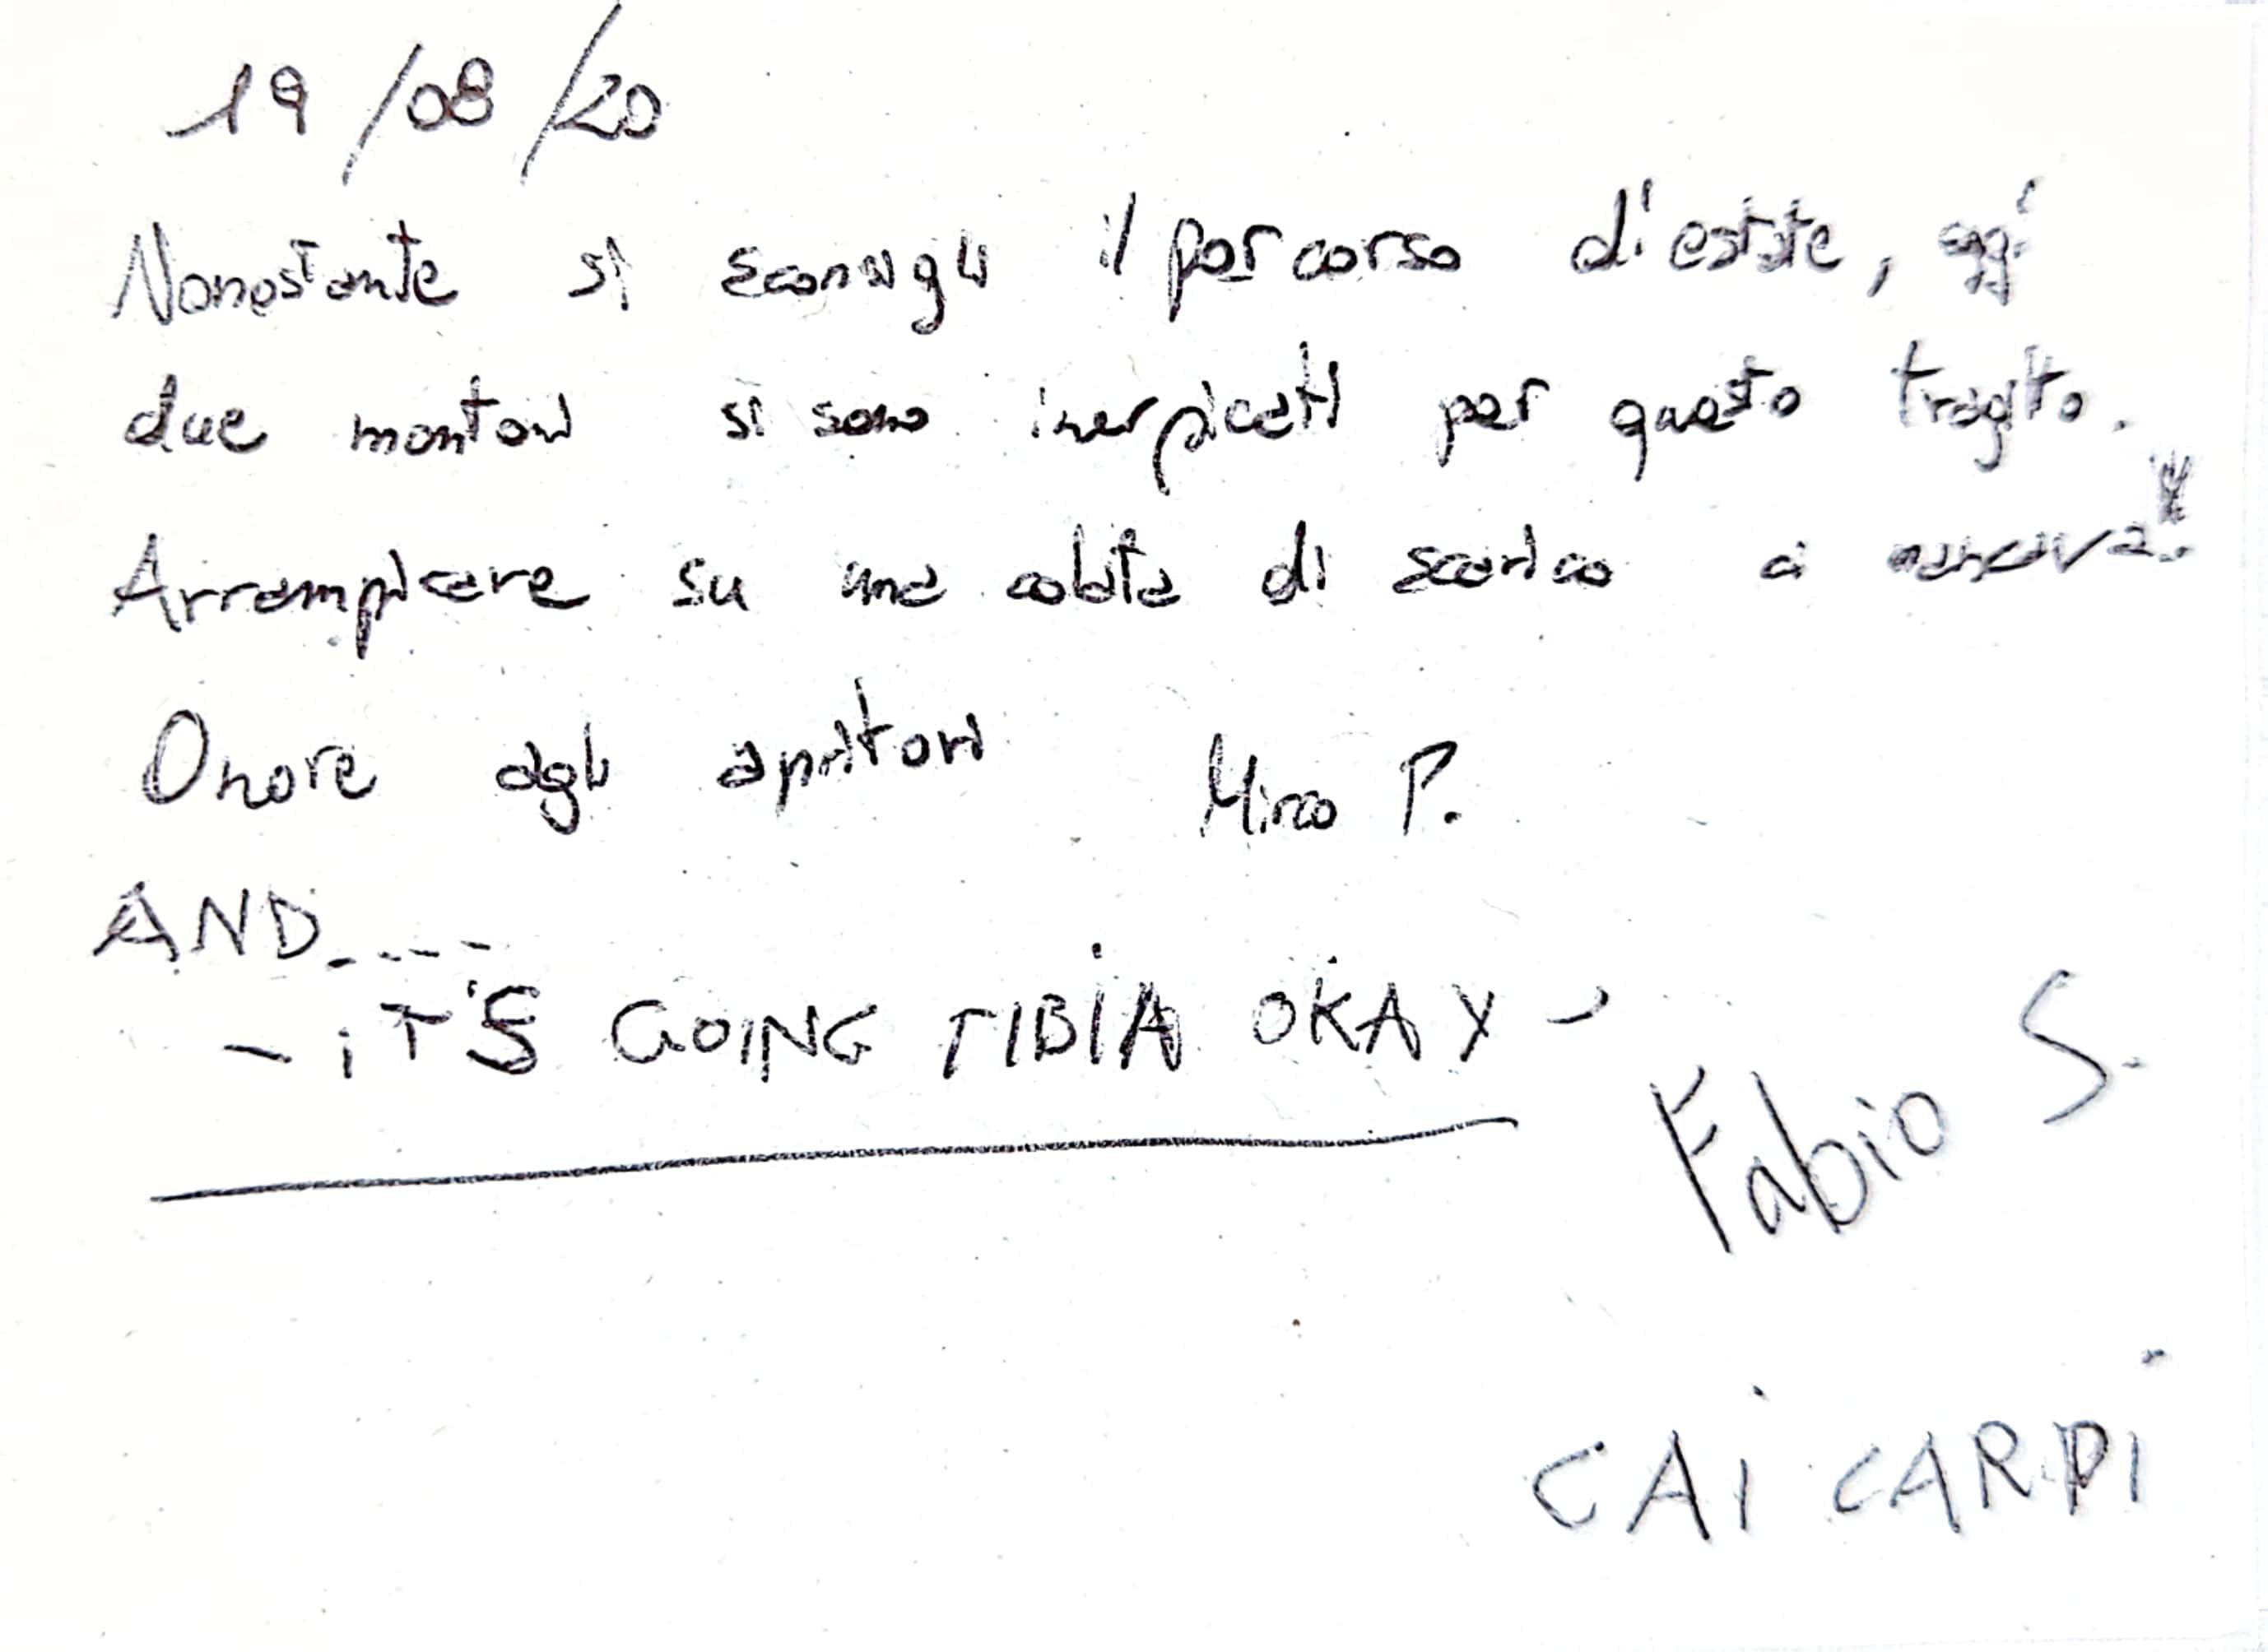 19/08/20
Nonostante si sconsigli il percorso d'estate, oggi
due montoni si sono inerpicati per questo tragitto.
Arrampicare su una colata di scarico ci mancava!!
Onore agli apritori Mirco P.
AND.....
- iT'S GOING TIBIA OKAY -
Fabio S.
CAI CARPI